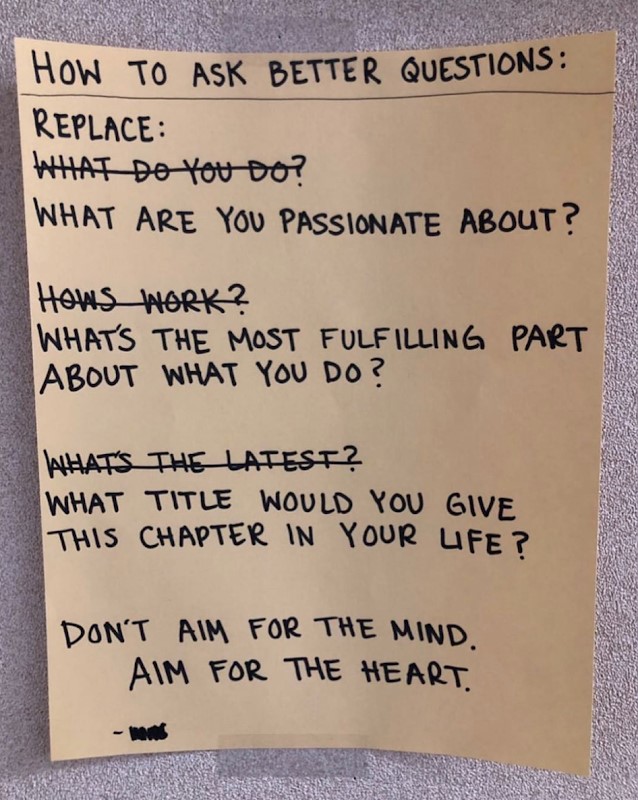 HOW TO ASK BETTER QUESTIONS:
REPLACE:
WHAT DO YOU DO?
WHAT ARE YOU PASSIONATE ABOUT?
HOWS WORK?
WHAT'S THE MOST FULFILLING PART
ABOUT WHAT YOU DO?
WHAT'S THE LATEST?
WHAT TITLE WOULD YOU GIVE
THIS CHAPTER IN YOUR LIFE?
DON'T AIM FOR THE MIND.
AIM FOR THE HEART.